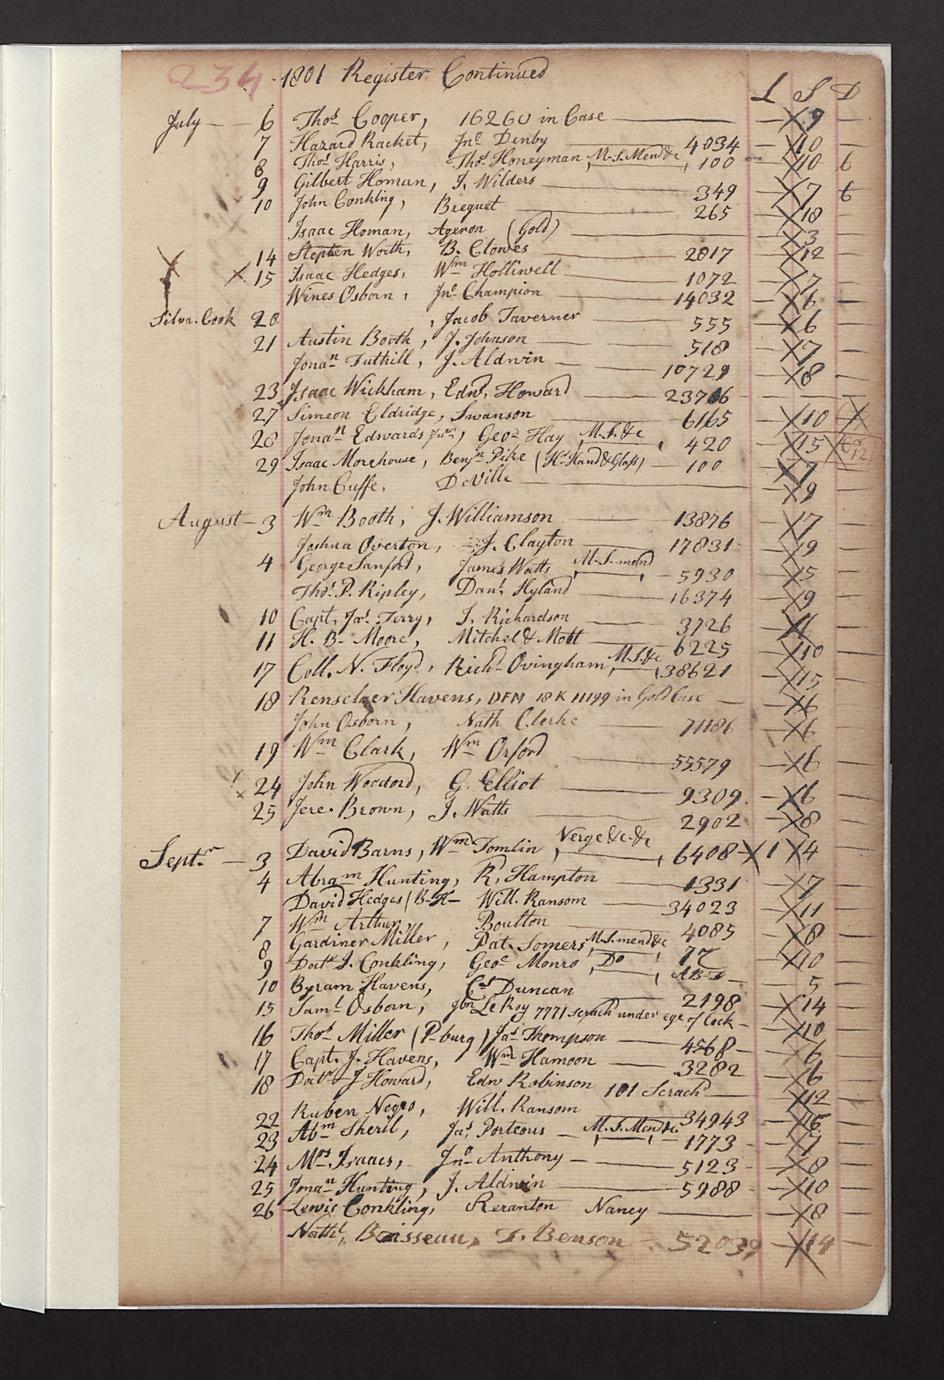 234 1801 Register Continued
L S D
July — 6 Thos. Cooper, 16260 in Case — X 9
7 Hazard Racket, Jno. Denby — 4034 — X 10 —
8 Thos. Harris, Thos. Honeyman, M.S. Mend &c, 100 — X 10 6
9 Gilbert Homan, J. Wilders — 349 — X 7 6
10 John Conkling, Breguet — 265 — X 18 —
Isaac Homan, Ageron (Gold) — X 3 —
14 Stephen Worth, B. Clowes — 2817 — X 12 —
X 15 Isaac Hedges, Wm Holliwell — 1072 — X 7 —
Wines Osborn, Jno. Champion — 14032 — X 6 —
Silva. Cook 20 , Jacob Taverner — 555 — X 6 —
21 Austin Booth, J. Johnson — 518 — X 7 —
Jonan Tuthill, J. Aldwin — 10729 — X 8 —
23 Isaac Wickham, Edwd. Howard — 23766
27 Simeon Eldridge, Swanson — 6165 — X 10 X
28 Jonan Edwards Junr., Geo. Hay, M.S. &c, 420 — X 15 X
29 Isaac Morehouse, Benjn Pike (Hr. Hand & Glass) — 100 — X 7 —
John Cuffe, DeVille — X 9 —
August — 3 Wm Booth, J. Williamson — 13876 — X 7 —
Joshua Overton, J. Clayton — 17831 — X 9 —
4 George Sanford, James Watts, M.S. mend, 5930 — X 15 —
Thos. P. Ripley, Danl. Hyland — 16374 — X 9 —
10 Capt. Jas. Terry, J. Richardson — 3726 — X —
11 H. B— Moore, Mitchel & Mott — 6225 — X 10 —
17 Coll. N. Floyd, Richd. Ovingham, M.S. &c, 38621 — X 15 —
18 Renselaer Havens, DFM 18 K 11199 in Gold Case — X 6 —
John Osborn, Nath Clerke — 71186 — X 6 —
19 Wm Clark, Wm Orford — 55579 — X 6 —
X 24 John Woodord, G. Elliot — 9309. — X 6 —
25 Jere. Brown, J. Watts — 2902 — X 8 —
Septr — 3 David Barns, Wm Tomlin, Verge &c. &c, 6408 — X 1 X 4 —
4 Abram Hunting, R. Hampton — 1331 — X 7 —
David Hedges (B-H— Will. Ransom — 34023 — X 11 —
7 Wm Arthur, Boulton — 4085 — X 8 —
8 Gardiner Miller, Pat. Somers, M.S. mend &c, 17 — X 10 —
9 Doctr J. Conkling, Geo. Monro, Do — — 5 —
10 Byram Havens, Cs Duncan — 2198 — X 14 —
15 Saml. Osborn, Jbn LeRoy 7771 scrach under ege of Cock — X 10 —
16 Thos. Miller (P-burg) Jas. Thompson — 4568 — X 6 —
17 Capt. J. Havens, Wm Hamoon — 3282 — X 6 —
18 Doctr J Howard, Edw Robinson 101 Scrachd — X 12 —
22 Ruben Negro, Will. Ransom — 34943 — X 6 —
23 Abm Sheril, Jas. Porteous — M.S. Mend &c, 1773 — X 7 —
24 Mrs. Isaacs, Jno. Anthony — 5123 — X 8 —
25 Jonan Hunting, J. Aldwin — 5988 — X 10 —
26 Lewis Conkling, Reranton Nancy — X 8 —
Nathl. Boisseau, T. Benson — 52039 — X 14 —